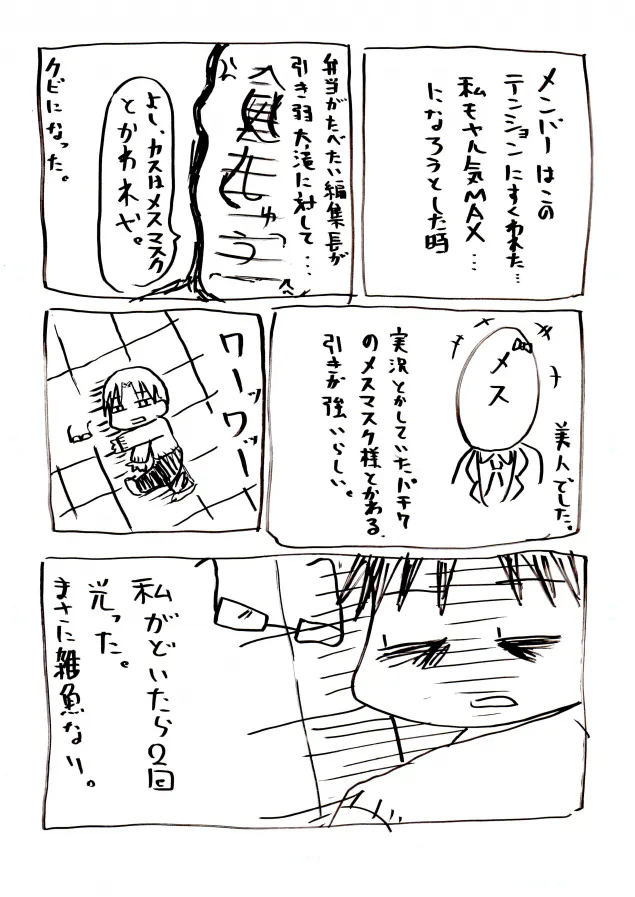 メンバーはこの
テンションにすくわれた…
私もヤル気MAX…
になろうとした時
弁当がたべたい編集長が
引き弱大滝に対して…
よし、カスはメスマスク
とかわれや。
クビになった。
メス
美人でした。
実況とかしていたパチク
のメスマスク様とかわる。
引きが強いらしい。
ワーッワッー
私がどいたら2回
光った。
まさに雑魚なり。